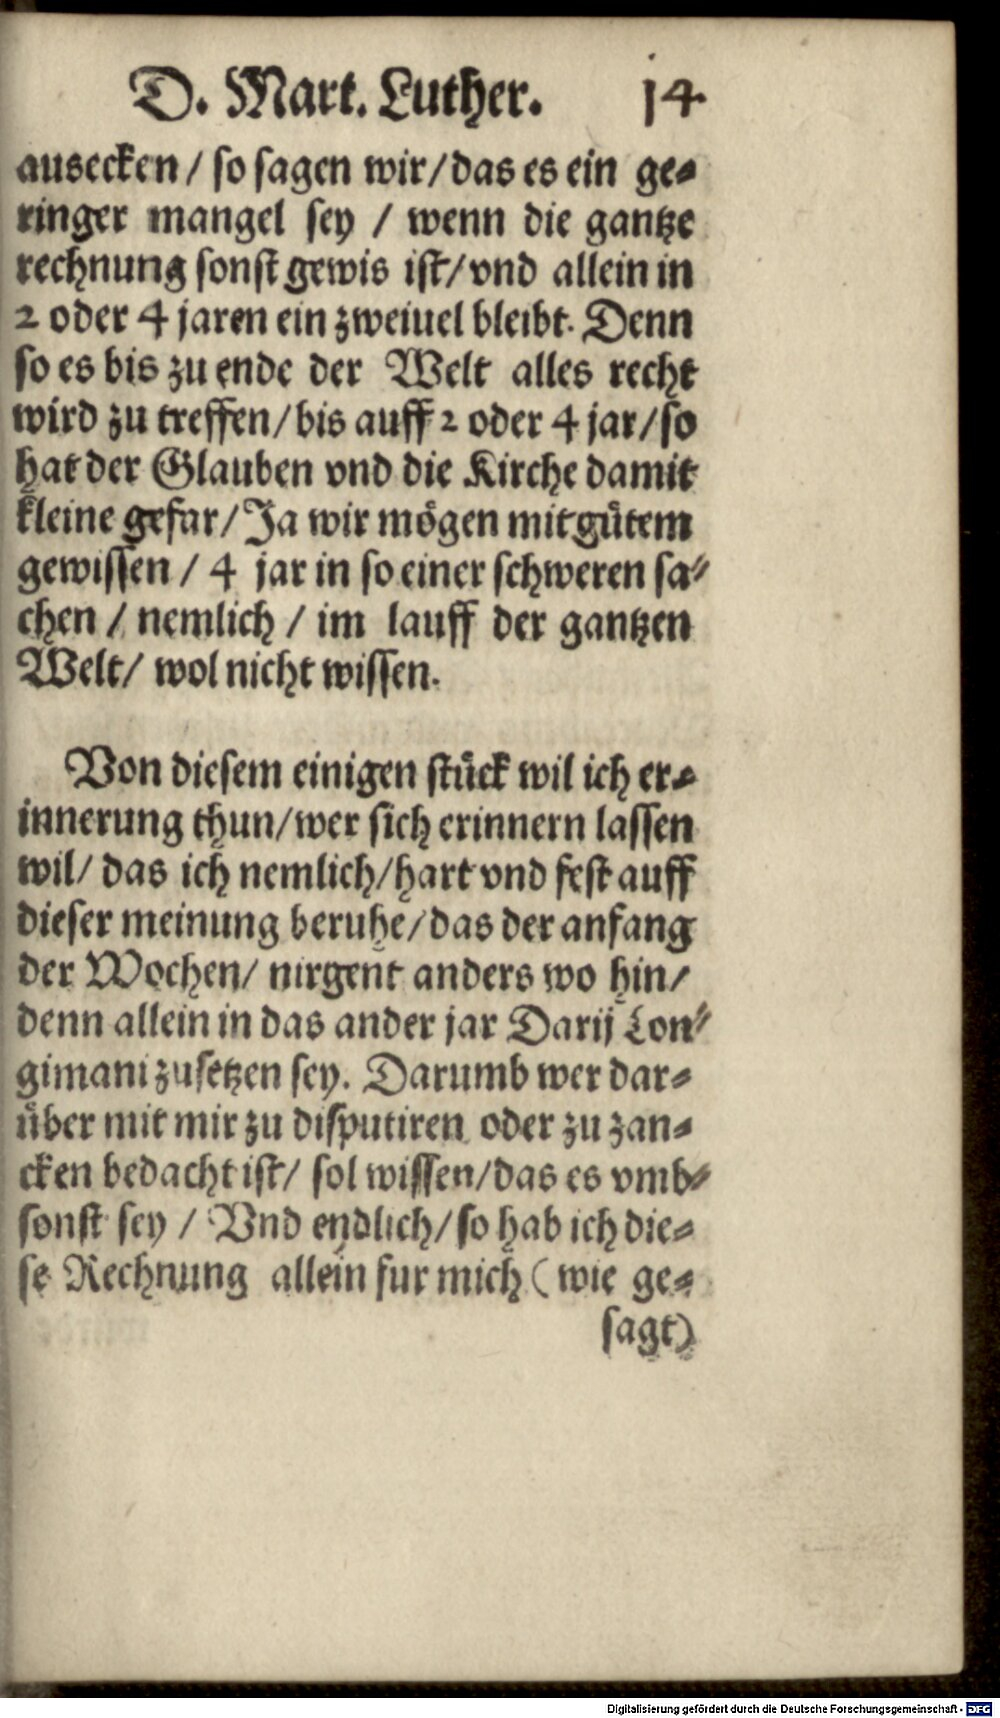 D. Mart. Luther. 14
ausecken / so sagen wir / das es ein ge-
ringer mangel sey / wenn die gantze
rechnung sonst gewis ist / vnd allein in
2 oder 4 jaren ein zweiuel bleibt. Denn
so es bis zu ende der Welt alles recht
wird zu treffen / bis auff 2 oder 4 jar / so
hat der Glauben vnd die Kirche damit
kleine gefar / Ja wir mögen mit gütem
gewissen / 4 jar in so einer schweren sa-
chen / nemlich / im lauff der gantzen
Welt / wol nicht wissen.
Von diesem einigen stück wil ich er-
innerung thun / wer sich erinnern lassen
wil / das ich nemlich / hart vnd fest auff
dieser meinung beruhe / das der anfang
der Wochen / nirgent anders wo hin /
denn allein in das ander jar Darij Lon-
gimani zusetzen sey. Darumb wer dar-
über mit mir zu disputiren oder zu zan-
cken bedacht ist / sol wissen / das es vmb-
sonst sey / Vnd endlich / so hab ich die-
se Rechnung allein fur mich ( wie ge-
sagt)
Digitalisierung gefördert durch die Deutsche Forschungsgemeinschaft - DFG